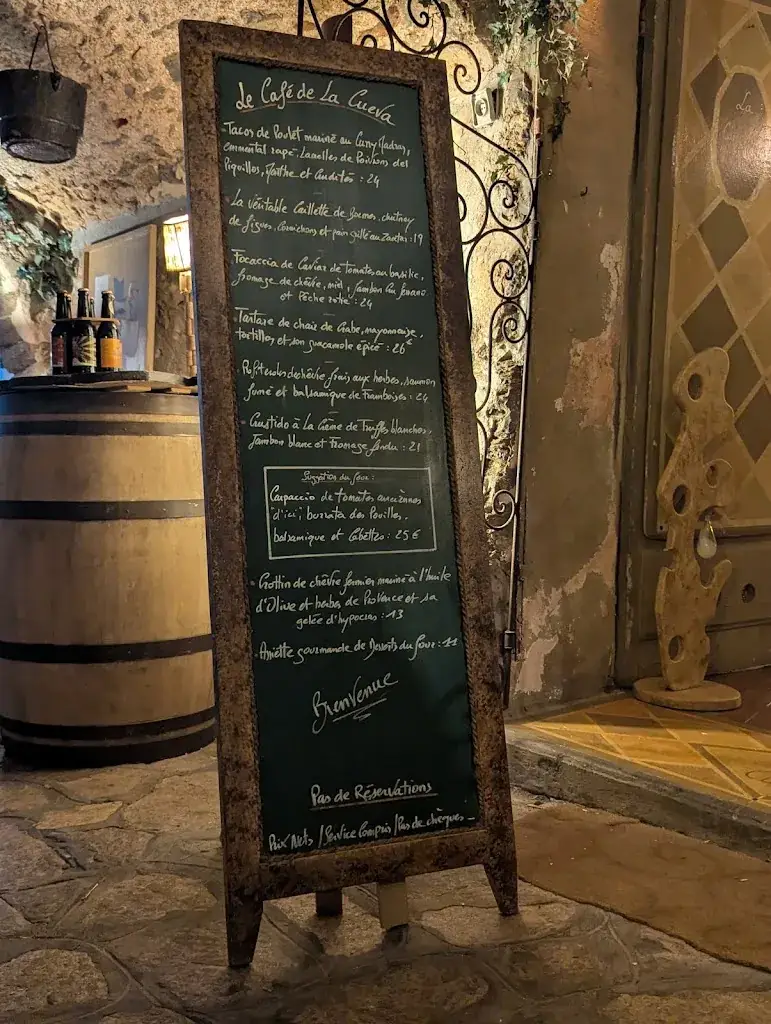 Le Café de La Cueva
- Tacos de Poulet mariné au Curry Madras,
emmental rapé, Lamelles de Poivrons del
Piquillos, Menthe et Crudités : 24
- La véritable Caillette de Bormes, chutney
de figues, Cornichons et pain grillé au Zaatar : 19
Focaccia de Caviar de tomates au basilic,
fromage de chèvre, miel, Jambon Cru Serrano
et Pêche rotie : 24
- Tartare de chair de Crabe, mayonnaise,
tortillas et son guacamole épicé : 26€
- Profiteroles de chèvre frais aux herbes, saumon
fumé et balsamique de framboises : 24
- Crustido à La Crème de Truffes blanches,
Jambon blanc et Fromage fondu : 21
Suggestion du Jour :
Carpaccio de tomates anciennes
"d'ici", burrata des Pouilles,
balsamique et : 25€
- Crottin de chèvre fermier mariné à l'huile
d'Olive et herbes de Provence et sa
gelée d'hypocras : 13
- Assiette gourmande de Desserts du Jour : 11
Bienvenue
Pas de Réservations
Prix Nets / Service Compris / Pas de chèques -
La